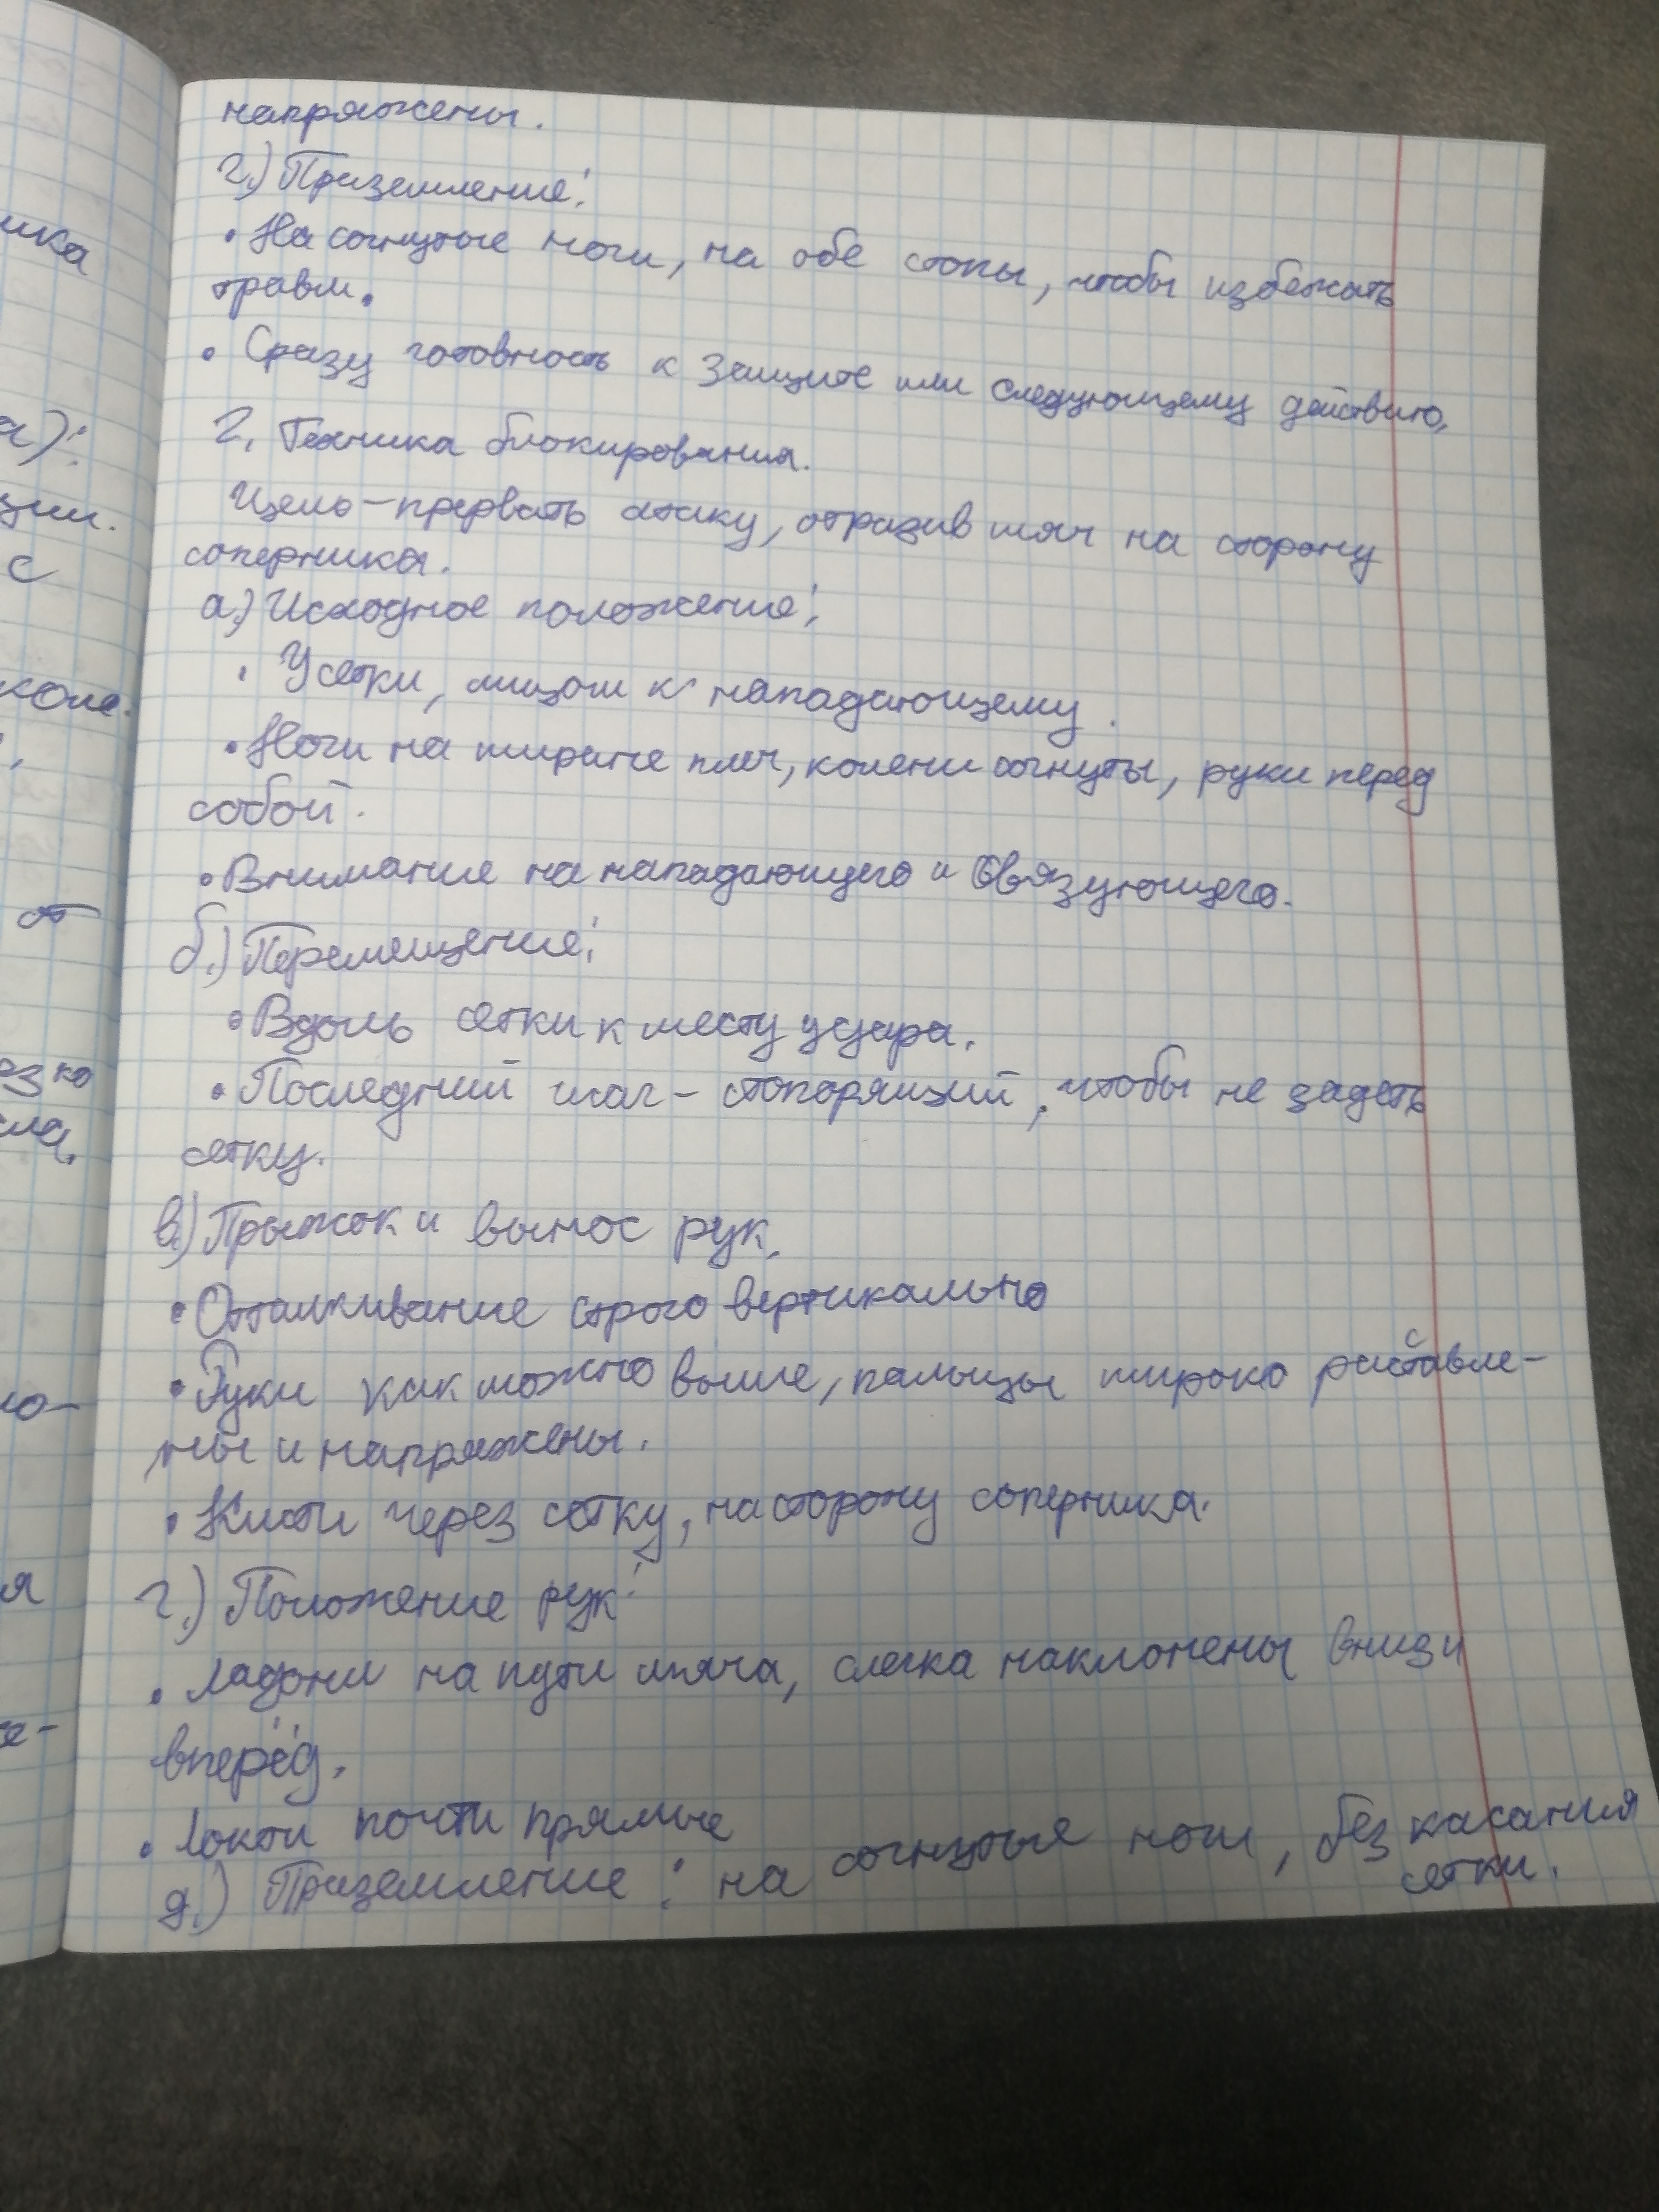 напряжены.
г.) Приземление:
• На согнутые ноги, на обе стопы, чтобы избежать
травм.
• Сразу готовность к защите или следующему действию.
2. Техника блокирования.
Цель – прервать атаку, отразив мяч на сторону
соперника.
а.) Исходное положение:
• У сетки, лицом к нападающему.
• Ноги на ширине плеч, колени согнуты, руки перед
собой.
• Внимание на нападающего и связующего.
б.) Перемещение:
• Вдоль сетки к месту удара.
• Последний шаг – стопорящий, чтобы не задеть
сетку.
в.) Прыжок и вынос рук.
• Отталкивание строго вертикально
• Руки как можно выше, пальцы широко расставле-
ны и напряжены.
• Кисти через сетку, на сторону соперника.
г.) Положение рук:
• Ладони на пути мяча, слегка наклонены вниз и
вперёд.
• Локти почти прямые
д.) Приземление: на согнутые ноги, без касания
сетки.